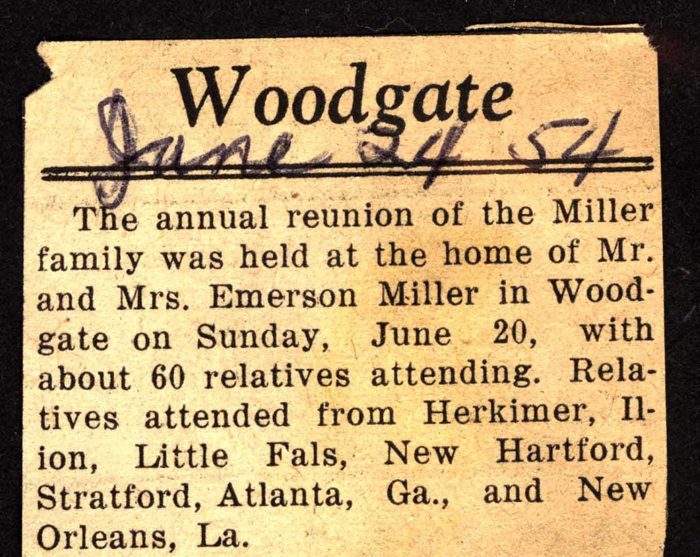 Woodgate
June 24 54
The annual reunion of the Miller
family was held at the home of Mr.
and Mrs. Emerson Miller in Wood-
gate on Sunday, June 20, with
about 60 relatives attending. Rela-
tives attended from Herkimer, Il-
ion, Little Fals, New Hartford,
Stratford, Atlanta, Ga., and New
Orleans, La.